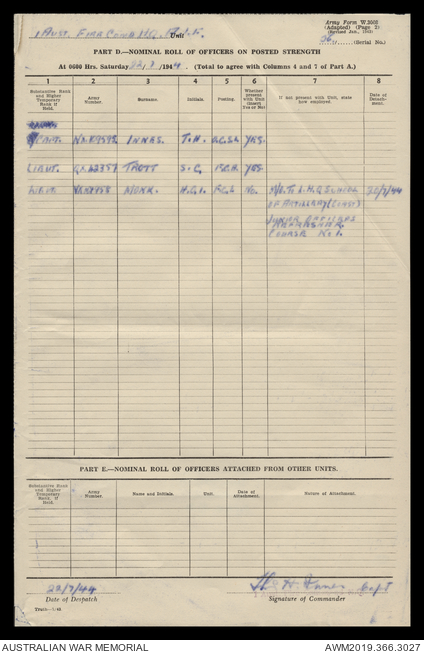 1 Aust. Fire Comd HQ. A.I.F.
Unit
Army Form W.3008
(Adapted) (Page 2)
(Revised Jan., 1943)
26 (Serial No.)
PART D.—NOMINAL ROLL OF OFFICERS ON POSTED STRENGTH
At 0600 Hrs. Saturday 22/7/1944. (Total to agree with Columns 4 and 7 of Part A.)
1 2 3 4 5 6 7 8
Substantive Rank and Higher Temporary Rank if Held. Army Number. Surname. Initials. Posting. Whether present with Unit (Insert Yes or No) If not present with Unit, state how employed. Date of Detachment.
INNES. T.H. YES.
LIEUT. TROTT S.C. YES.
MONK. H.G.I. No. TO L.H.Q SCHOOL 20/7/44
OF ARTILLERY (COAST)
JUNIOR OFFICERS
COURSE No 1.
PART E.—NOMINAL ROLL OF OFFICERS ATTACHED FROM OTHER UNITS.
Substantive Rank and Higher Temporary Rank if Held. Army Number. Name and Initials. Unit. Date of Attachment. Nature of Attachment.
22/7/44 H Innes Capt
Date of Despatch Signature of Commander
AUSTRALIAN WAR MEMORIAL AWM2019.366.3027